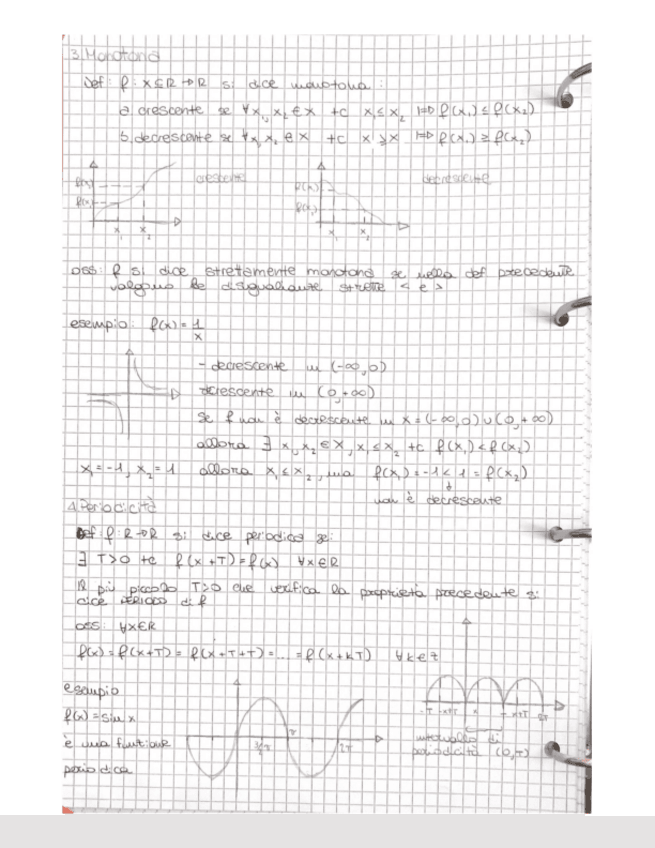 3. Monotonia
Def: f: X⊆R → R si dice monotona:
a. crescente se ∀x₁, x₂ ∈ X t.c x₁ ≤ x₂ ⟼ f(x₁) ≤ f(x₂)
b. decrescente se ∀x₁, x₂ ∈ X t.c x ≥ x ⟼ f(x₁) ≥ f(x₂)
crescente
decrescente
f(x₂)
f(x₁)
x₁ x₂
f(x₁)
f(x₂)
x₁ x₂
oss: f si dice strettamente monotona se nella def precedente
valgono le disuguaglianze strette < e >
esempio: f(x) = 1/x
- decrescente in (-∞, 0)
decrescente in (0, +∞)
se f non è decrescente in X = (-∞, 0) ∪ (0, +∞)
allora ∃ x₁, x₂ ∈ X, x₁ ≤ x₂ t.c f(x₁) < f(x₂)
x₁ = -1, x₂ = 1 allora x₁ ≤ x₂, ma f(x₁) = -1 < 1 = f(x₂)
non è decrescente
4. Periodicità
Def: f: R → R si dice periodica se:
∃ T>0 t.c f(x+T) = f(x) ∀x∈R
Il più piccolo T>0 che verifica la proprietà precedente si
dice PERIODO di f
oss: ∀x∈R
f(x) = f(x+T) = f(x+T+T) = ... = f(x+kT) ∀k∈Z
esempio
f(x) = sin x
è una funzione
periodica
π
2π
-T
x
intervallo di
periodicità (0,T)